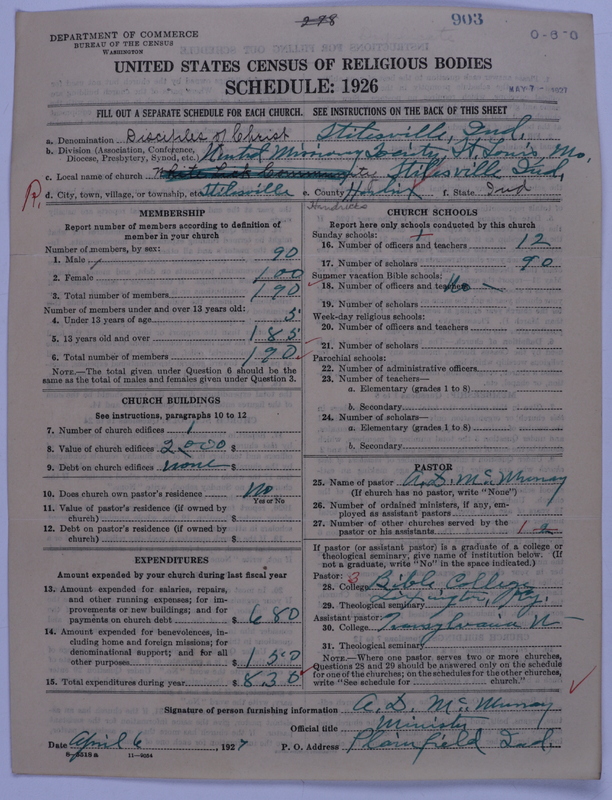 298
903
DEPARTMENT OF COMMERCE
BUREAU OF THE CENSUS
WASHINGTON
0-8-0
UNITED STATES CENSUS OF RELIGIOUS BODIES
SCHEDULE: 1926
MAY 7 - 1927
FILL OUT A SEPARATE SCHEDULE FOR EACH CHURCH. SEE INSTRUCTIONS ON THE BACK OF THIS SHEET
a. Denomination Disciples of Christ Stilesville, Ind.
b. Division (Association, Conference, Diocese, Presbytery, Synod, etc.) Central Missionary Society St Louis Mo.
c. Local name of church Stilesville Ind,
R. d. City, town, village, or township, etc. Stilesville e. County f. State Ind
Hendricks
MEMBERSHIP
Report number of members according to definition of
member in your church
Number of members, by sex:
1. Male 90
2. Female 100
3. Total number of members 190
Number of members under and over 13 years old:
4. Under 13 years of age 5
5. 13 years old and over 185
6. Total number of members 190
NOTE.—The total given under Question 6 should be the
same as the total of males and females given under Question 3.
CHURCH BUILDINGS
See instructions, paragraphs 10 to 12
7. Number of church edifices 1
8. Value of church edifices 2000 $
9. Debt on church edifices none $
10. Does church own pastor's residence No
Yes or No
11. Value of pastor's residence (if owned by
church) $
12. Debt on pastor's residence (if owned by
church) $
EXPENDITURES
Amount expended by your church during last fiscal year
13. Amount expended for salaries, repairs,
and other running expenses; for im-
provements or new buildings; and for
payments on church debt $ 680
14. Amount expended for benevolences, in-
cluding home and foreign missions; for
denominational support; and for all
other purposes $ 150
15. Total expenditures during year $ 830
CHURCH SCHOOLS
Report here only schools conducted by this church
Sunday schools:
16. Number of officers and teachers 12
17. Number of scholars 90
Summer vacation Bible schools:
18. Number of officers and teachers No —
19. Number of scholars
Week-day religious schools:
20. Number of officers and teachers
21. Number of scholars
Parochial schools:
22. Number of administrative officers
23. Number of teachers—
a. Elementary (grades 1 to 8)
b. Secondary
24. Number of scholars—
a. Elementary (grades 1 to 8)
b. Secondary
PASTOR
25. Name of pastor A. D. McMurray
(If church has no pastor, write "None")
26. Number of ordained ministers, if any, em-
ployed as assistant pastors
27. Number of other churches served by the
pastor or his assistants 1
If pastor (or assistant pastor) is a graduate of a college or
theological seminary, give name of institution below. (If
not a graduate, write "No" in the space indicated.)
Pastor: 3
28. College Bible College
29. Theological seminary Lexington, Ky.
Assistant pastor:
30. College Transylvania
31. Theological seminary
NOTE.—Where one pastor serves two or more churches,
Questions 28 and 29 should be answered only on the schedule
for one of the churches; on the schedules for the other churches,
write "See schedule for church."
Signature of person furnishing information A. D. McMurray
Official title Minister
Date April 6, 1927 P. O. Address Plainfield Ind.
8-5518 a 11-9034